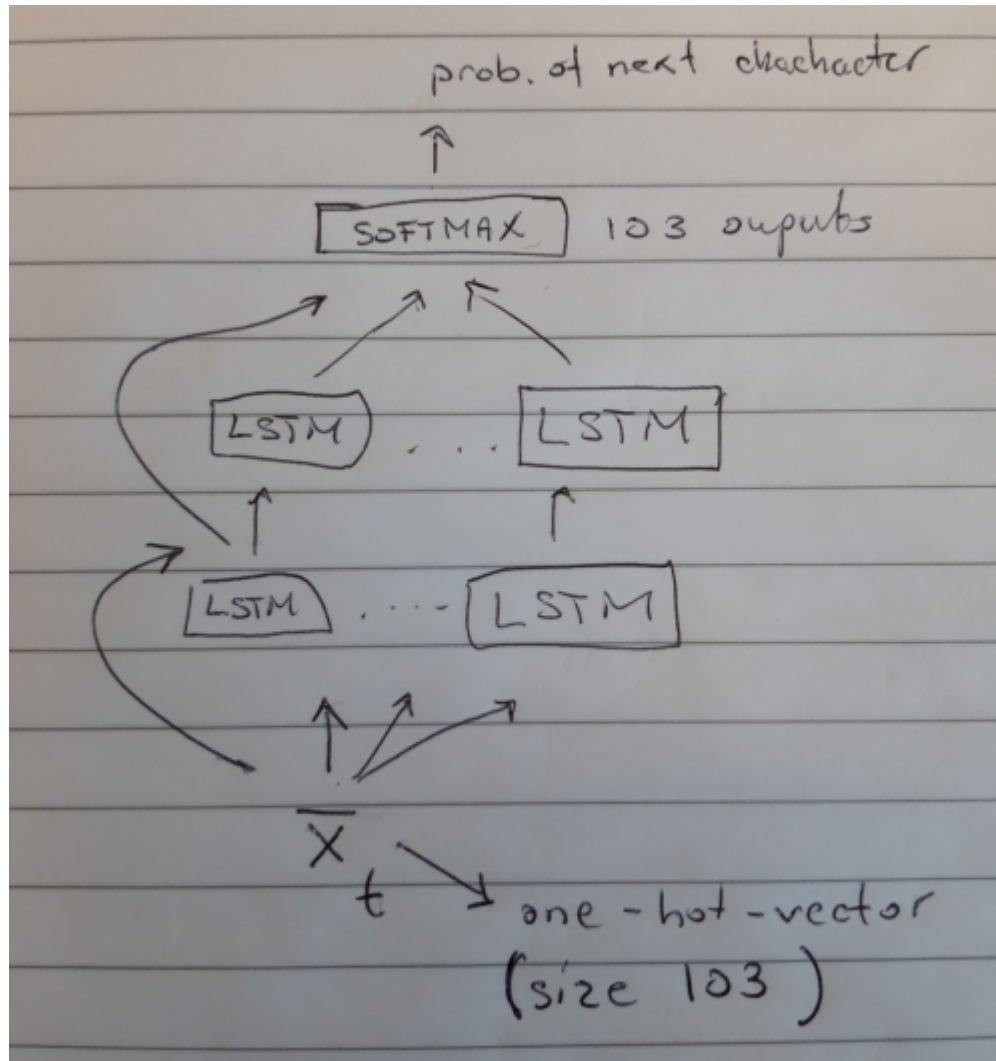 prob. of next chachacter
SOFTMAX 103 ouputs
LSTM .... LSTM
LSTM ..... LSTM
X̅
t
one-hot-vector
(size 103)